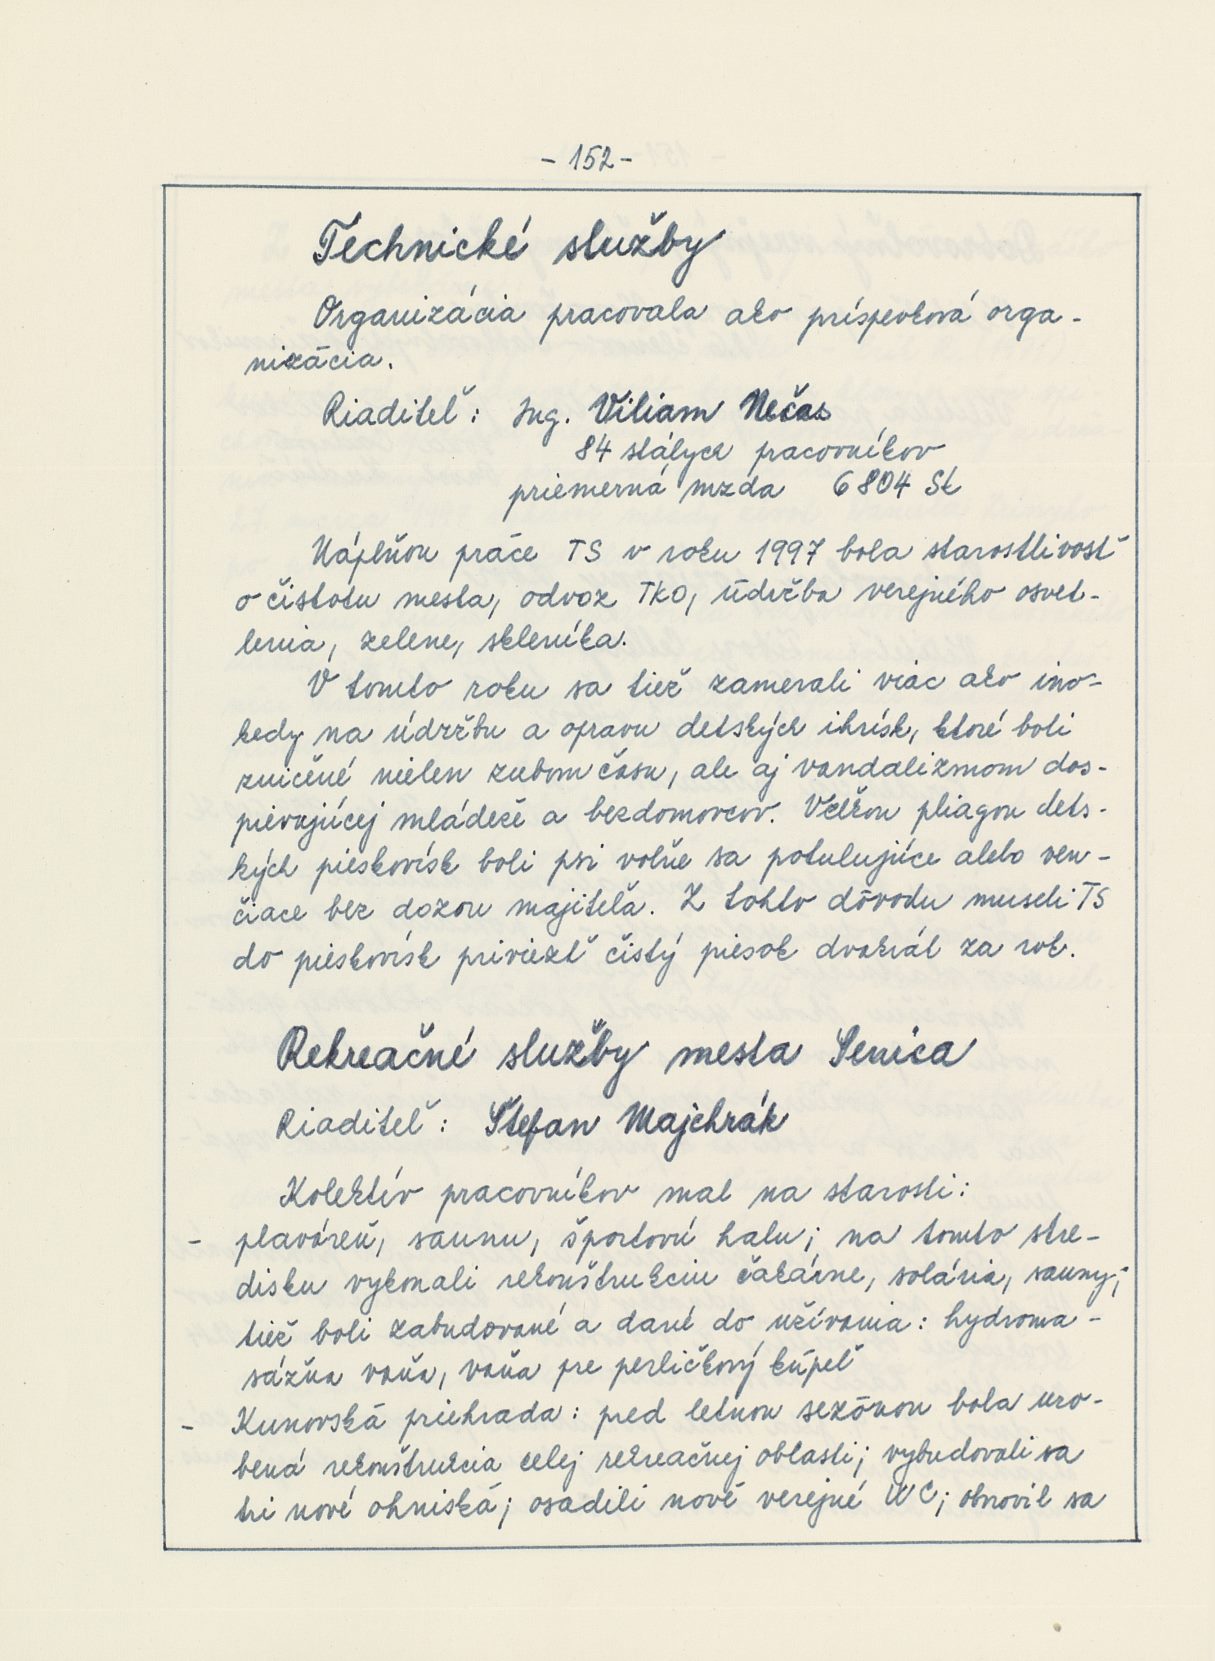 - 152 -
Technické služby
Organizácia pracovala ako príspevková orga-
nizácia.
Riaditeľ: Ing. Viliam Nečas
84 stálych pracovníkov
priemerná mzda 6 804 Sk
Náplňou práce TS v roku 1997 bola starostlivosť
o čistotu mesta, odvoz TKO, údržba verejného osvet-
lenia, zelene, skleníka.
V tomto roku sa tiež zamerali viac ako ino-
kedy na údržbu a opravu detských ihrísk, ktoré boli
zničené nielen zubom času, ale aj vandalizmom dos-
pievajúcej mládeže a bezdomovcov. Veľkou pliagou dets-
kých pieskovísk boli psi voľne sa potulujúce alebo ven-
čiace bez dozoru majiteľa. Z tohto dôvodu museli TS
do pieskovísk priviezť čistý piesok dvakrát za rok.
Rekreačné služby mesta Senica
Riaditeľ: Štefan Majchrák
Kolektív pracovníkov mal na starosti:
- plaváreň, saunu, športovú halu; na tomto stre-
disku vykonali rekonštrukciu čakárne, solária, sauny;
tiež boli zabudované a dané do užívania: hydroma-
sážna vaňa, vaňa pre perličkový kúpeľ
- Kunovská priehrada: pred letnou sezónou bola uro-
bená rekonštrukcia celej rekreačnej oblasti; vybudovali sa
tri nové ohniská; osadili nové verejné WC; obnovil sa